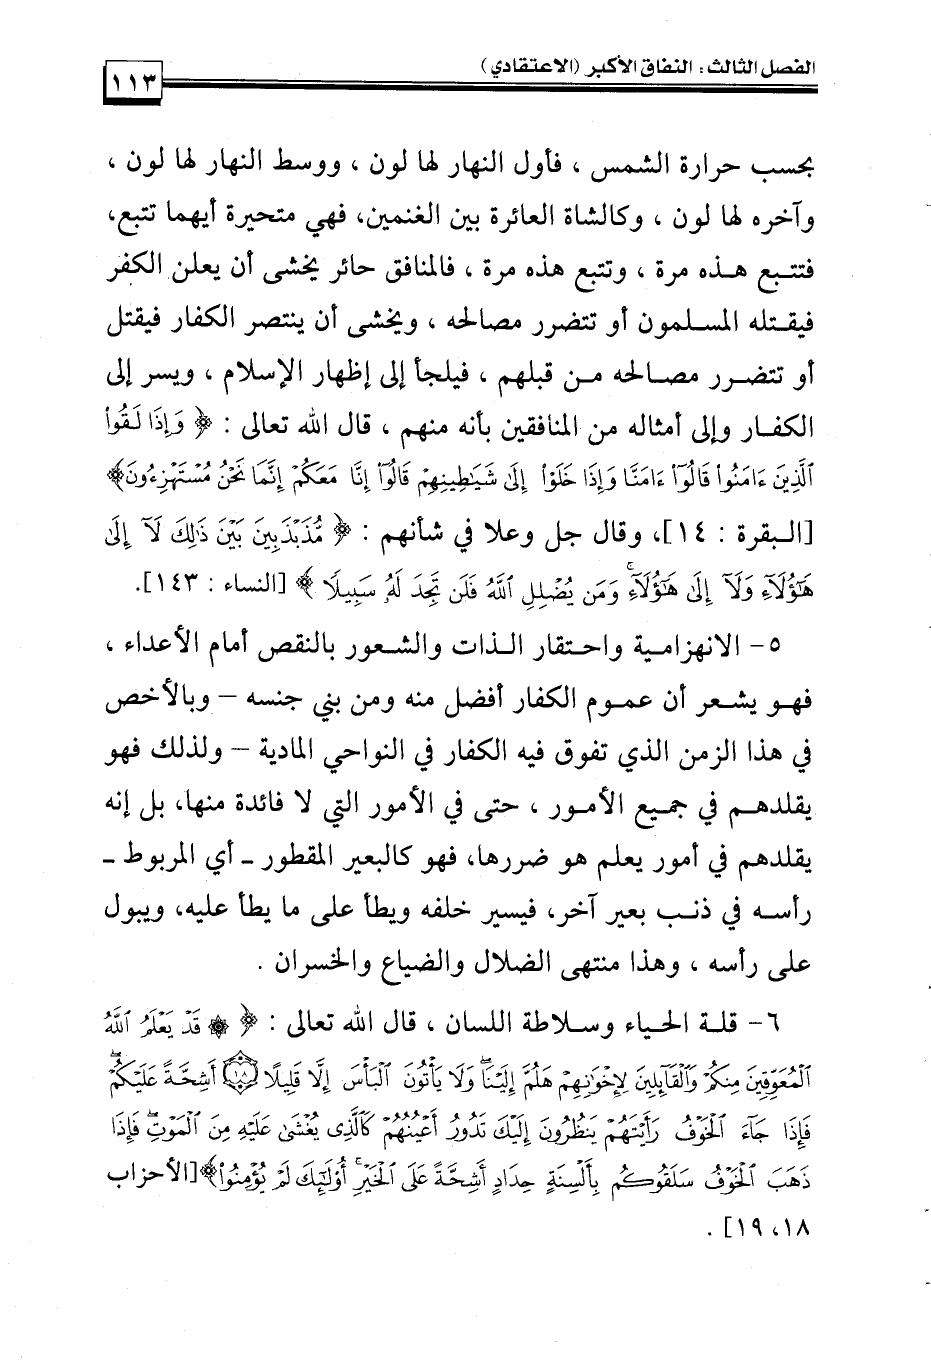 الفصل الثالث : النفاق الأكبر (الاعتقادي)
١١٣
بحسب حرارة الشمس ، فأول النهار لها لون ، ووسط النهار لها لون ،
وآخره لها لون ، وكالشاة العائرة بين الغنمين، فهي متحيرة أيهما تتبع،
فتتبع هذه مرة ، وتتبع هذه مرة ، فالمنافق حائر يخشى أن يعلن الكفر
فيقتله المسلمون أو تتضرر مصالحه ، ويخشى أن ينتصر الكفار فيقتل
أو تتضرر مصالحه من قبلهم ، فيلجأ إلى إظهار الإسلام ، ويسر إلى
الكفار وإلى أمثاله من المنافقين بأنه منهم ، قال الله تعالى : ﴿ وَإِذَا لَقُوا۟
ٱلَّذِينَ ءَامَنُوا۟ قَالُوٓا۟ ءَامَنَّا وَإِذَا خَلَوْا۟ إِلَىٰ شَيَـٰطِينِهِمْ قَالُوٓا۟ إِنَّا مَعَكُمْ إِنَّمَا نَحْنُ مُسْتَهْزِءُونَ﴾
[البقرة : ١٤]، وقال جل وعلا في شأنهم : ﴿ مُّذَبْذَبِينَ بَيْنَ ذَٰلِكَ لَآ إِلَىٰ
هَـٰٓؤُلَآءِ وَلَآ إِلَىٰ هَـٰٓؤُلَآءِ ۚ وَمَن يُضْلِلِ ٱللَّهُ فَلَن تَجِدَ لَهُۥ سَبِيلًا ﴾ [النساء : ١٤٣].
٥- الانهزامية واحتقار الذات والشعور بالنقص أمام الأعداء ،
فهو يشعر أن عموم الكفار أفضل منه ومن بني جنسه – وبالأخص
في هذا الزمن الذي تفوق فيه الكفار في النواحي المادية – ولذلك فهو
يقلدهم في جميع الأمور ، حتى في الأمور التي لا فائدة منها، بل إنه
يقلدهم في أمور يعلم هو ضررها، فهو كالبعير المقطور ـ أي المربوط ـ
رأسه في ذنب بعير آخر، فيسير خلفه ويطأ على ما يطأ عليه، ويبول
على رأسه ، وهذا منتهى الضلال والضياع والخسران .
٦- قلة الحياء وسلاطة اللسان ، قال الله تعالى : ﴿ ۞ قَدْ يَعْلَمُ ٱللَّهُ
ٱلْمُعَوِّقِينَ مِنكُمْ وَٱلْقَآئِلِينَ لِإِخْوَٰنِهِمْ هَلُمَّ إِلَيْنَا ۖ وَلَا يَأْتُونَ ٱلْبَأْسَ إِلَّا قَلِيلًا ﴿١٨﴾ أَشِحَّةً عَلَيْكُمْ ۖ
فَإِذَا جَآءَ ٱلْخَوْفُ رَأَيْتَهُمْ يَنظُرُونَ إِلَيْكَ تَدُورُ أَعْيُنُهُمْ كَٱلَّذِى يُغْشَىٰ عَلَيْهِ مِنَ ٱلْمَوْتِ ۖ فَإِذَا
ذَهَبَ ٱلْخَوْفُ سَلَقُوكُم بِأَلْسِنَةٍ حِدَادٍ أَشِحَّةً عَلَى ٱلْخَيْرِ ۚ أُو۟لَـٰٓئِكَ لَمْ يُؤْمِنُوا۟﴾ [الأحزاب
١٨، ١٩] .